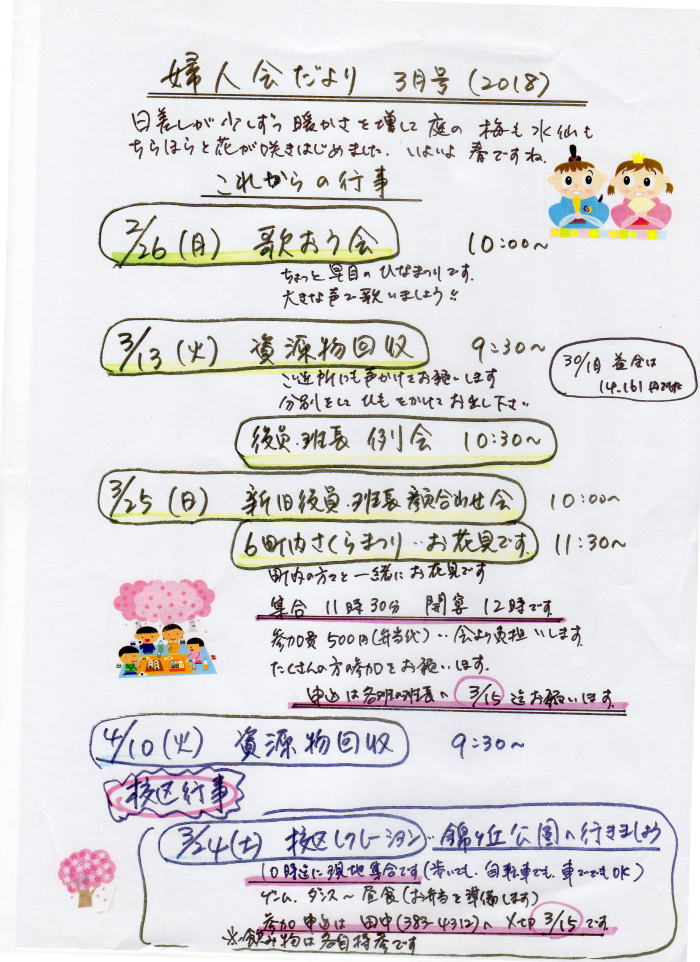 婦人会だより 3月号(2018)
日差しが少しずつ暖かさを増して庭の梅も水仙も
ちらほらと花が咲きはじめました。いよいよ春ですね。
これからの行事
2/26(月) 歌おう会 10:00~
ちょっと早目のひなまつりです。
大きな声で歌いましょう!!
3/13(火) 資源物回収 9:30~
30/1月 益金は
14.161円でした
ご近所にも声かけをお願いします
分別をして ひもをかけてお出し下さい
役員.班長 例会 10:30~
3/25(日) 新旧役員.班長顔合わせ会 10:00~
6町内さくらまつり‥お花見です。 11:30~
町内の方々と一緒にお花見です
集合 11時30分 開宴 12時です
参加費 500円(弁当代)‥会より負担いします。
たくさんの方の参加をお願いします。
申込は各班の班長へ 3/15 迄お願いします。
4/10(火) 資源物回収 9:30~
校区行事
3/24(土) 校区レクレーション‥錦ヶ丘公園へ行きましょう
10時迄に現地集合です(歩いても、自転車でも、車でもOK)
ゲーム、ダンス~昼食(お弁当を準備します)
参加申込は田中(383-4312)へ〆切3/15です。
※飲み物は各自持参です